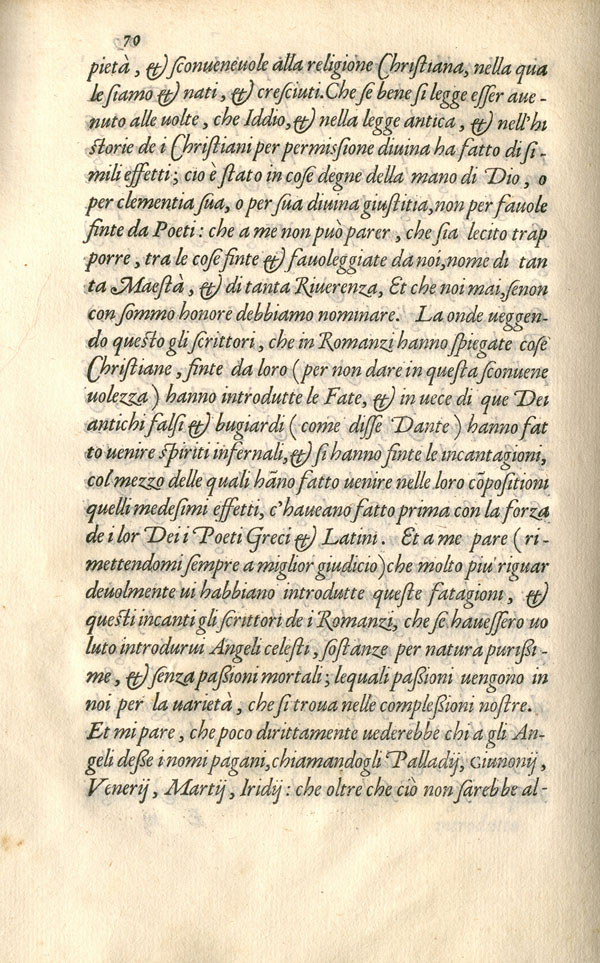 70
pietà, & sconueneuole alla religione Christiana, nella qua
le siamo & nati, & cresciuti. Che se bene si legge esser aue-
nuto alle uolte, che Iddio, & nella legge antica, & nell'hi
storie de i Christiani per permissione diuina ha fatto di si-
mili effetti; cio è stato in cose degne della mano di Dio, o
per clementia sua, o per sua diuina giustitia, non per fauole
finte da Poeti: che a me non può parer, che sia lecito trap
porre, tra le cose finte & fauoleggiate da noi, nome di tan
ta Maestà, & di tanta Riuerenza, Et che noi mai, senon
con sommo honore debbiamo nominare. La onde ueggen-
do questo gli scrittori, che in Romanzi hanno spiegate cose
Christiane, finte da loro (per non dare in questa sconuene
uolezza) hanno introdutte le Fate, & in uece di que Dei
antichi falsi & bugiardi (come disse Dante) hanno fat
to uenire spiriti infernali, & si hanno finte le incantagioni,
col mezzo delle quali hāno fatto uenire nelle loro cōpositioni
quelli medesimi effetti, c'haueano fatto prima con la forza
de i lor Dei i Poeti Greci & Latini. Et a me pare (ri-
mettendomi sempre a miglior giudicio) che molto piu riguar
deuolmente ui habbiano introdutte queste fatagioni, &
questi incanti gli scrittori de i Romanzi, che se hauessero uo
luto introdurui Angeli celesti, sostanze per natura purißi-
me, & senza paßioni mortali; lequali paßioni uengono in
noi per la uarietà, che si troua nelle compleßioni nostre.
Et mi pare, che poco dirittamente uederebbe chi a gli An-
geli deße i nomi pagani, chiamandogli Palladij, Giunonij,
Venerij, Martij, Iridij: che oltre che ciò non sarebbe al-